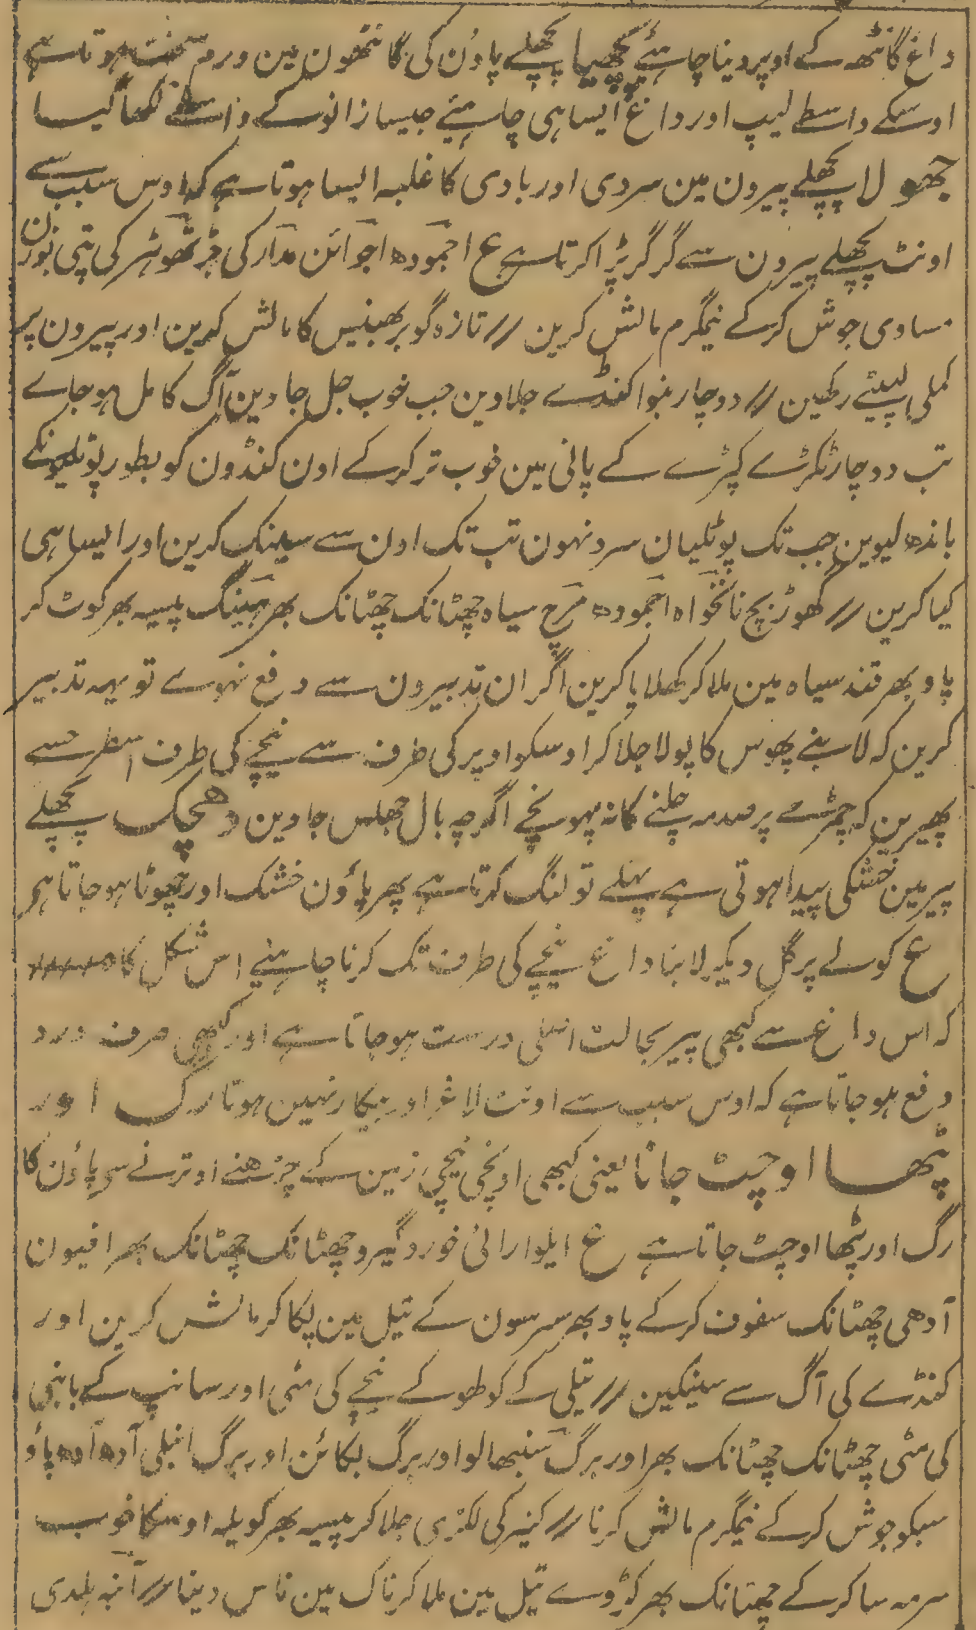 داغ گانٹھ کے اوپر دینا چاہئے کچھیا پچھلے پاؤن کی گانٹھون مین ورم سخت ہوتا ہے
اوسکے واسطے لیپ اور داغ ایسا ہی چاہیئے جیسا زانو کے واسطے لکھا گیا
جھولا پچھلے پیرون مین سردی اور بادی کا غلبہ ایسا ہوتا ہے کہ اوس سبب سے
اونٹ پچھلے پیرون سے گر گر پڑا کرتا ہے ع اجمودہ اجوائن مدار کی جڑ تھوہر کی پتی نون
مساوی جوش کرکے نیمگرم مالش کرین // تازہ گوبر بھینس کا مالش کرین اور پیرون پر
کملی لپیٹے رکھین // دو چار بنوا کنڈے جلاوین جب خوب جل جاوین آگ کامل ہو جاے
تب دو چار ٹکڑے کپڑے کے پانی مین خوب تر کرکے اون کنڈون کو بطور پوٹلیونکے
باندھ لیوین جب تک پوٹلیان سرد نہون تب تک اون سے سینک کرین اور ایسا ہی
کیا کرین // گھوڑ بچ نانخواہ اجمودہ مرچ سیاہ چھٹانک چھٹانک بھر ہینگ پیسہ بھر کوٹ کر
پاو بھر قند سیاہ مین ملا کر کھلایا کرین اگر ان تدبیرون سے دفع نہوے تو یہہ تدبیر
کرین کہ لانبے پھوس کا پولا جلا کر اوسکو اوپر کی طرف سے نیچے کی طرف اسطرحسے
پھیرین کہ چمڑے پر صدمہ جلنے کا نہ پہونچے اگرچہ بال جھلس جاوین دھچک پچھلے
پیر مین خشکی پیدا ہوتی ہے پہلے تو لنگ کرتا ہے پھر پاؤن خشک اور چھوٹا ہو جاتا ہے
ع کولے پر گل دیکر لانبا داغ نیچے کی طرف تک کرنا چاہیئے اس شکل کا
کہ اس داغ سے کبھی پیر بحالت اصلی درست ہو جاتا ہے اور کبھی صرف درد
دفع ہو جاتا ہے کہ اوس سبب سے اونٹ لاغر اور بیکار نہین ہوتا رگ اور
پٹھا اوچٹ جانا یعنی کبھی اونچی نیچی زمین کے چڑھنے اوترنے سے پاؤن کا
رگ اور پٹھا اوچٹ جاتا ہے ع ایلوا رائی خورد گیرو چھٹانک چھٹانک بھر افیون
آدھی چھٹانک سفوف کرکے پاو بھر سرسون کے تیل مین پکا کر مالش کرین اور
کنڈے کی آگ سے سینکین // تیلی کے کولھو کے نیچے کی مٹی اور سانپ کے بانبی
کی مٹی چھٹانک چھٹانک بھر اور برگ سنبھالو اور برگ بکائن اور برگ انبلی آدھ آدھ پاؤ
سبکو جوش کرکے نیمگرم مالش کرنا // کنیر کی لکڑی جلا کر پیسہ بھر کویلہ اوسکا خوب
سرمہ سا کرکے چھٹانک بھر کڑوے تیل مین ملا کر ناک مین ناس دینا // آنبہ ہلدی